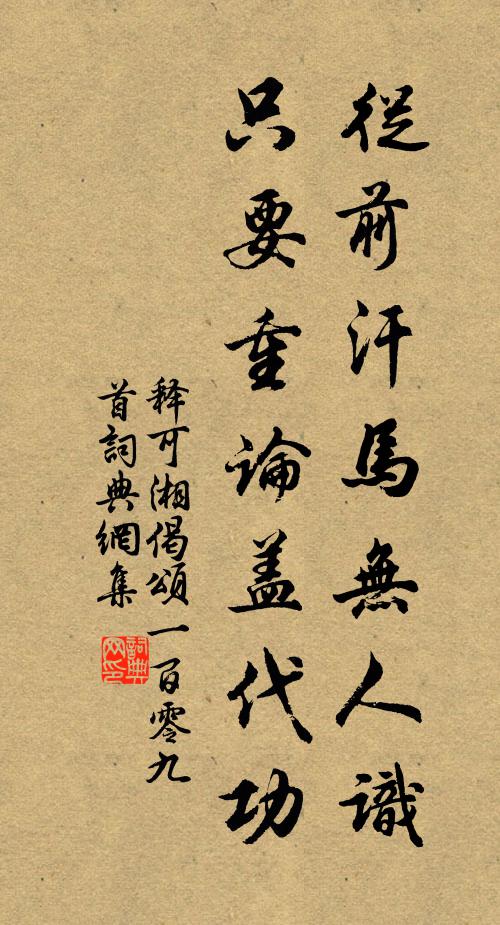 從前汗馬無人識
只要重論盖代功
释可湘偈頌一百零九
首詞典網集
詞典
网印